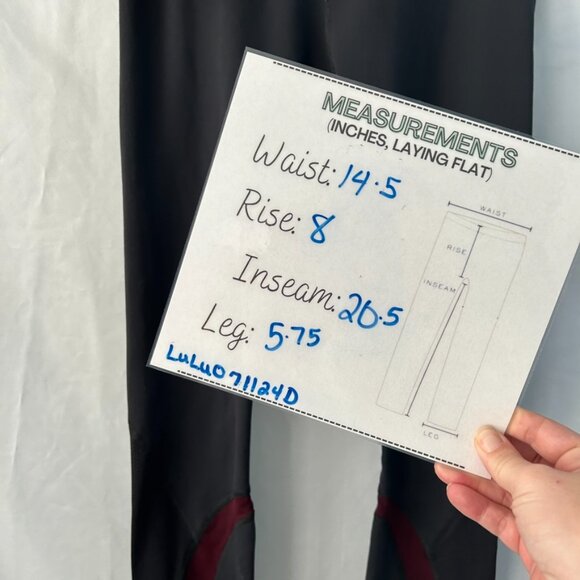 MEASUREMENTS
(INCHES, LAYING FLAT)
Waist: 14.5
Rise: 8
Inseam: 20.5
Leg: 5.75
LULU071124D
WAIST
RISE
INSEAM
LEG